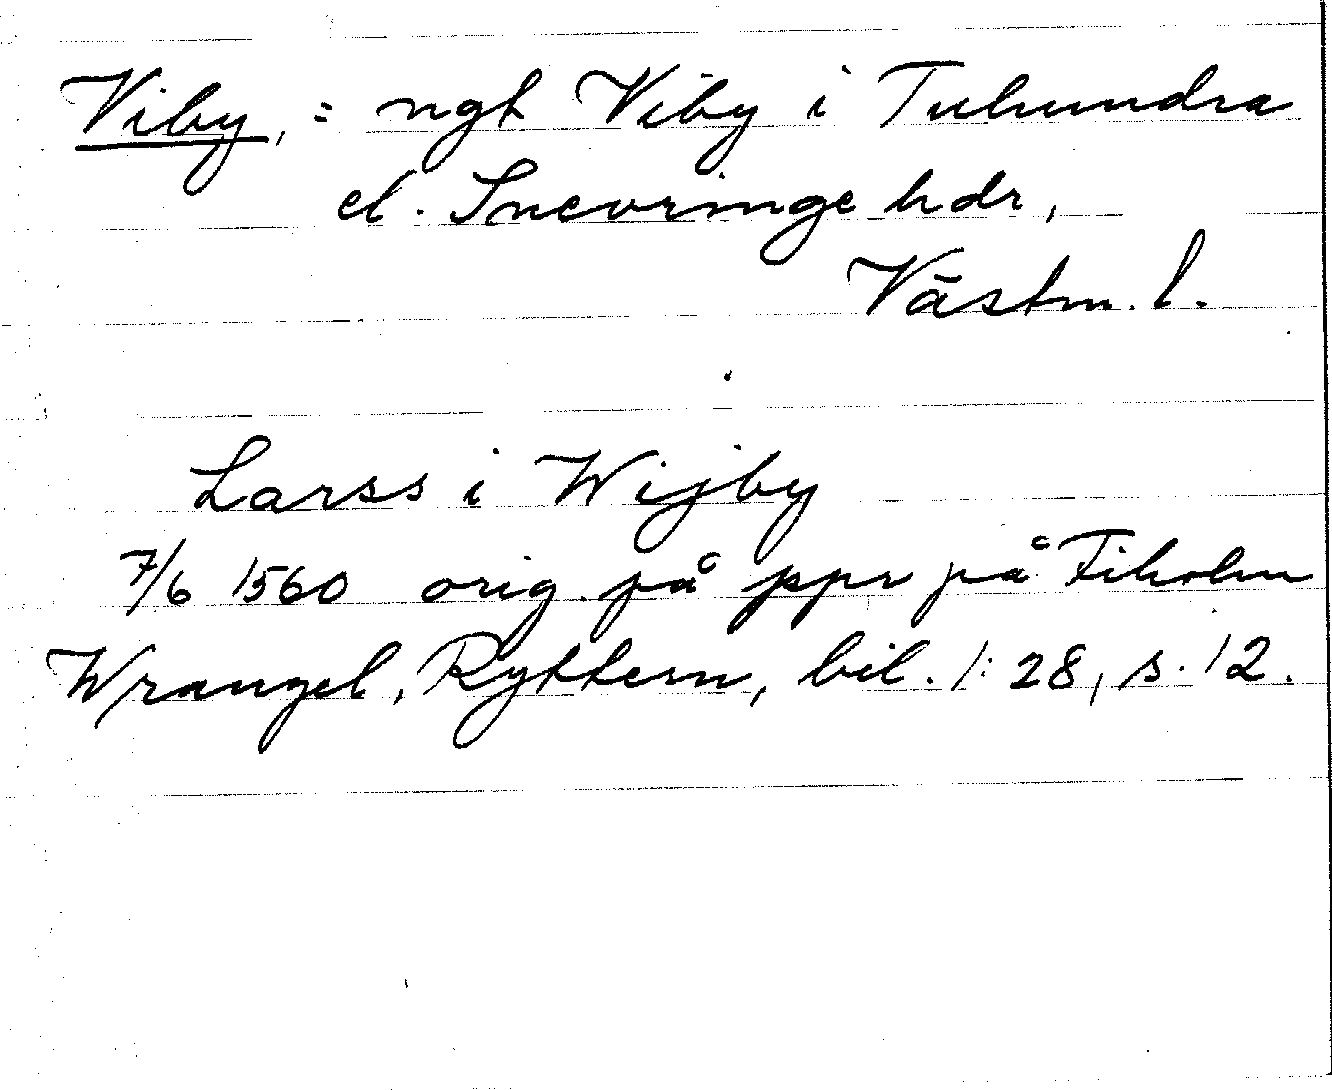 Viby, = ngt Viby i Tuhundra
el. Snevringe hdr,
Västm. l.
Larss i Wijby
7/6 1560 orig. på ppr på Fiholm
Wrangel, Ryttern, bil. 1:28, s. 12.